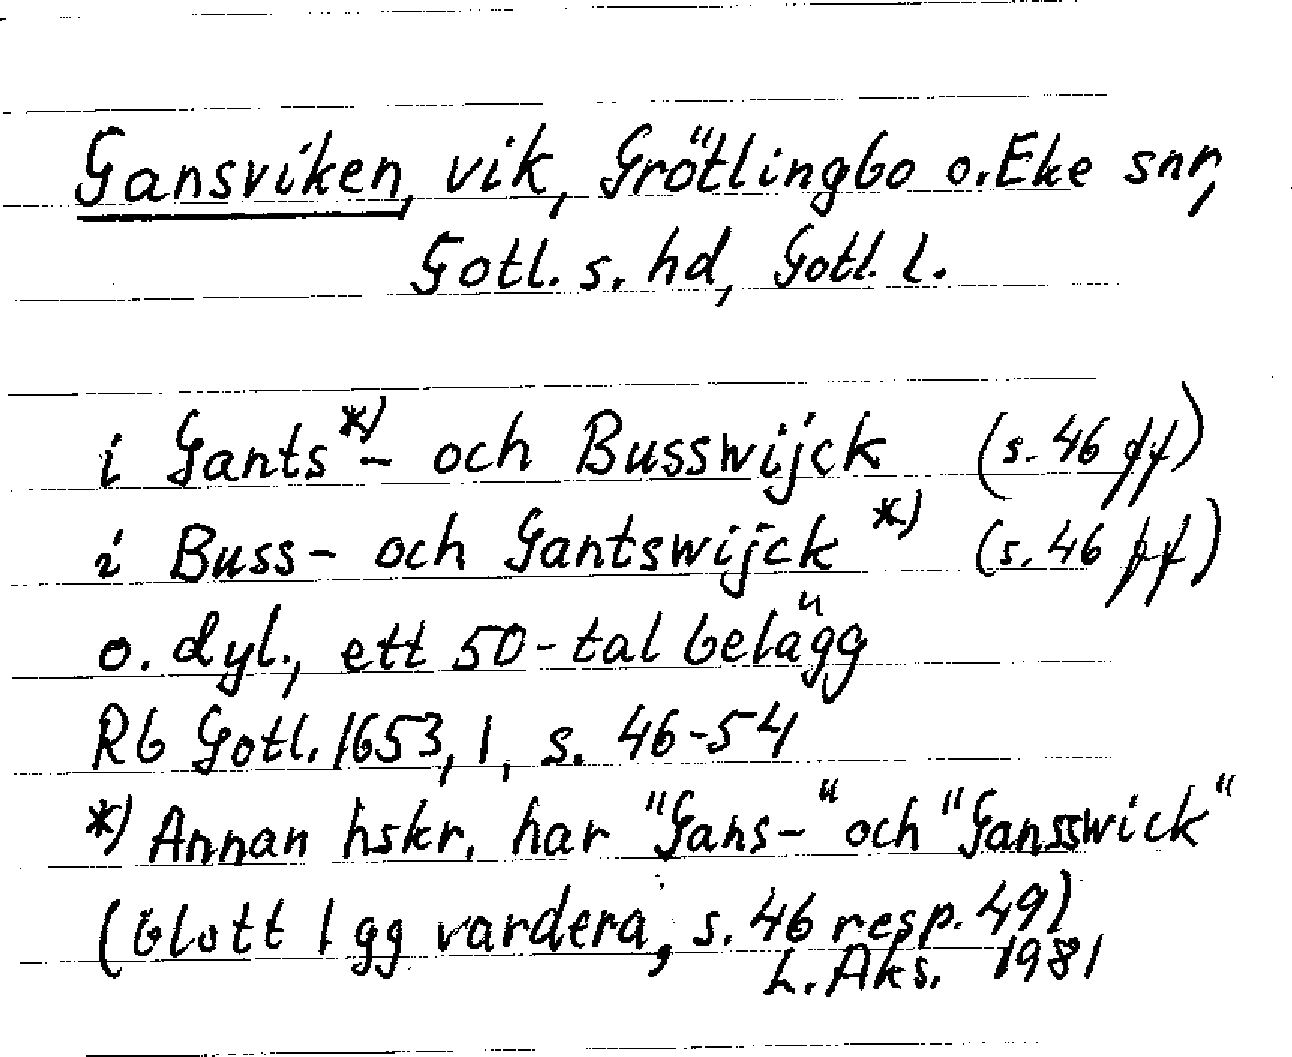 Gansviken, vik, Grötlingbo o. Eke snr,
Gotl. s. hd, Gotl. l.
i Gants*)- och Busswijck (s. 46 ff)
i Buss- och Gantswijck *) (s. 46 ff)
o. dyl., ett 50-tal belägg
Rb Gotl. 1653, 1, s. 46-54
*) Annan hskr. har "Gans-" och "Gansswick"
(blott 1 gg vardera, s. 46 resp. 49)
L. Aks. 1981